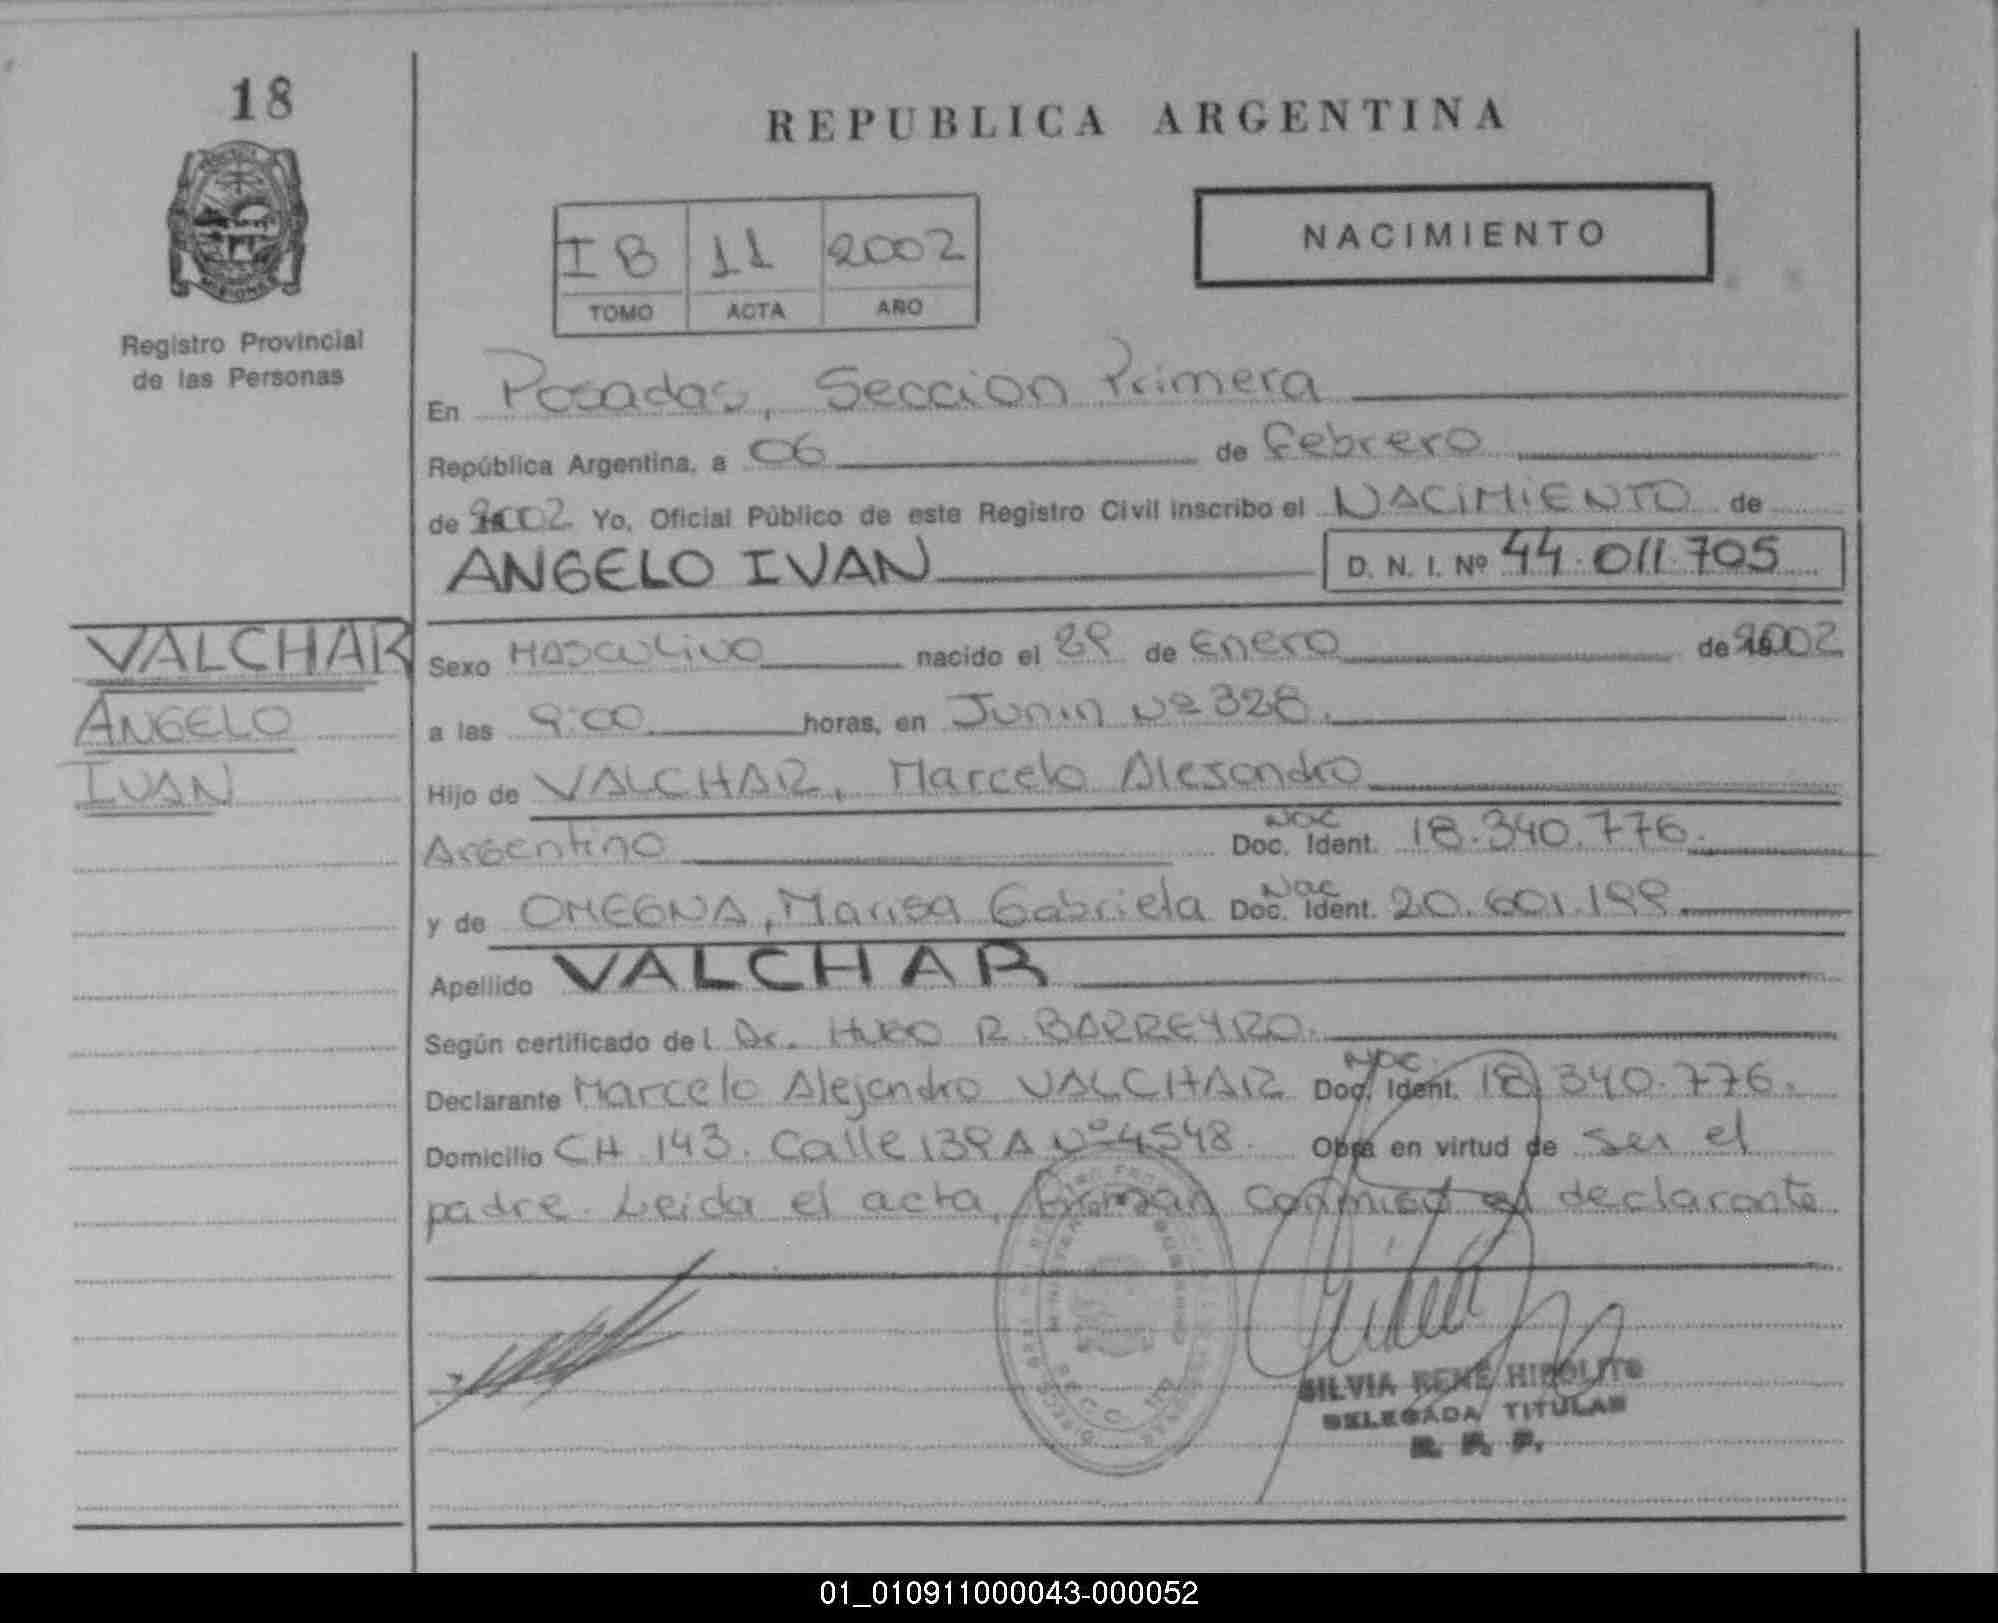 18
REPUBLICA ARGENTINA
NACIMIENTO
I B 11 2002
TOMO ACTA AÑO
Registro Provincial
de las Personas
En Posadas, Seccion Primera
República Argentina, a 06 de Febrero
de 2002 Yo, Oficial Público de este Registro Civil inscribo el NACIMIENTO de
ANGELO IVAN D. N. I. Nº 44.011.705
VALCHAR
ANGELO
IVAN
Sexo MASCULINO nacido el 29 de Enero de 2002
a las 9:00 horas, en Junin Nº 328.
Hijo de VALCHAR, Marcelo Alejandro
Argentino Nac Doc. Ident. 18.340.776.
y de OMEGNA, Marisa Gabriela Nac Doc. Ident. 20.601.199.
Apellido VALCHAR
Según certificado del Dr. HUGO R. BARREYRO.
Declarante Marcelo Alejandro VALCHAR Nac Doc. Ident. 18.340.776.
Domicilio CH 143. Calle 139 A Nº 4548. Obra en virtud de ser el
padre. Leida el acta, firman conmigo el declarante
SILVIA RENE HIPOLITO
DELEGADA TITULAR
R. P. P.
01_010911000043-000052